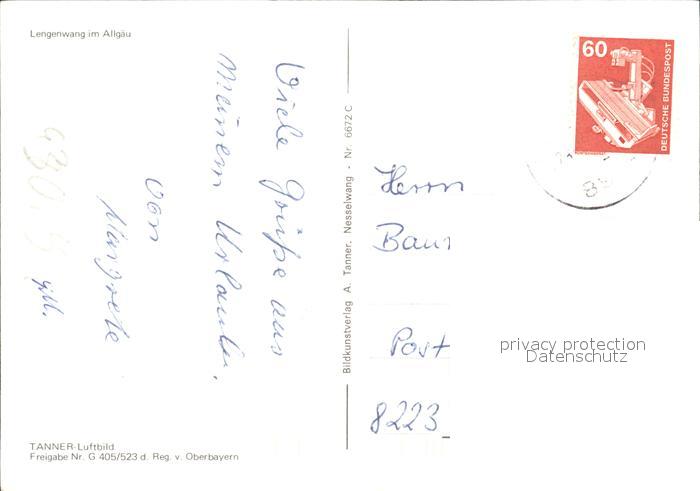 Lengenwang im Allgäu
Viele Grüße aus
Meinem Urlaub.
Von
Margrete
TANNER-Luftbild
Freigabe Nr. G 405/523 d. Reg. v. Oberbayern
Bildkunstverlag A. Tanner, Nesselwang - Nr. 6672 C
60
DEUTSCHE BUNDESPOST
Herrn
Baur
Post
8223
privacy protection
Datenschutz